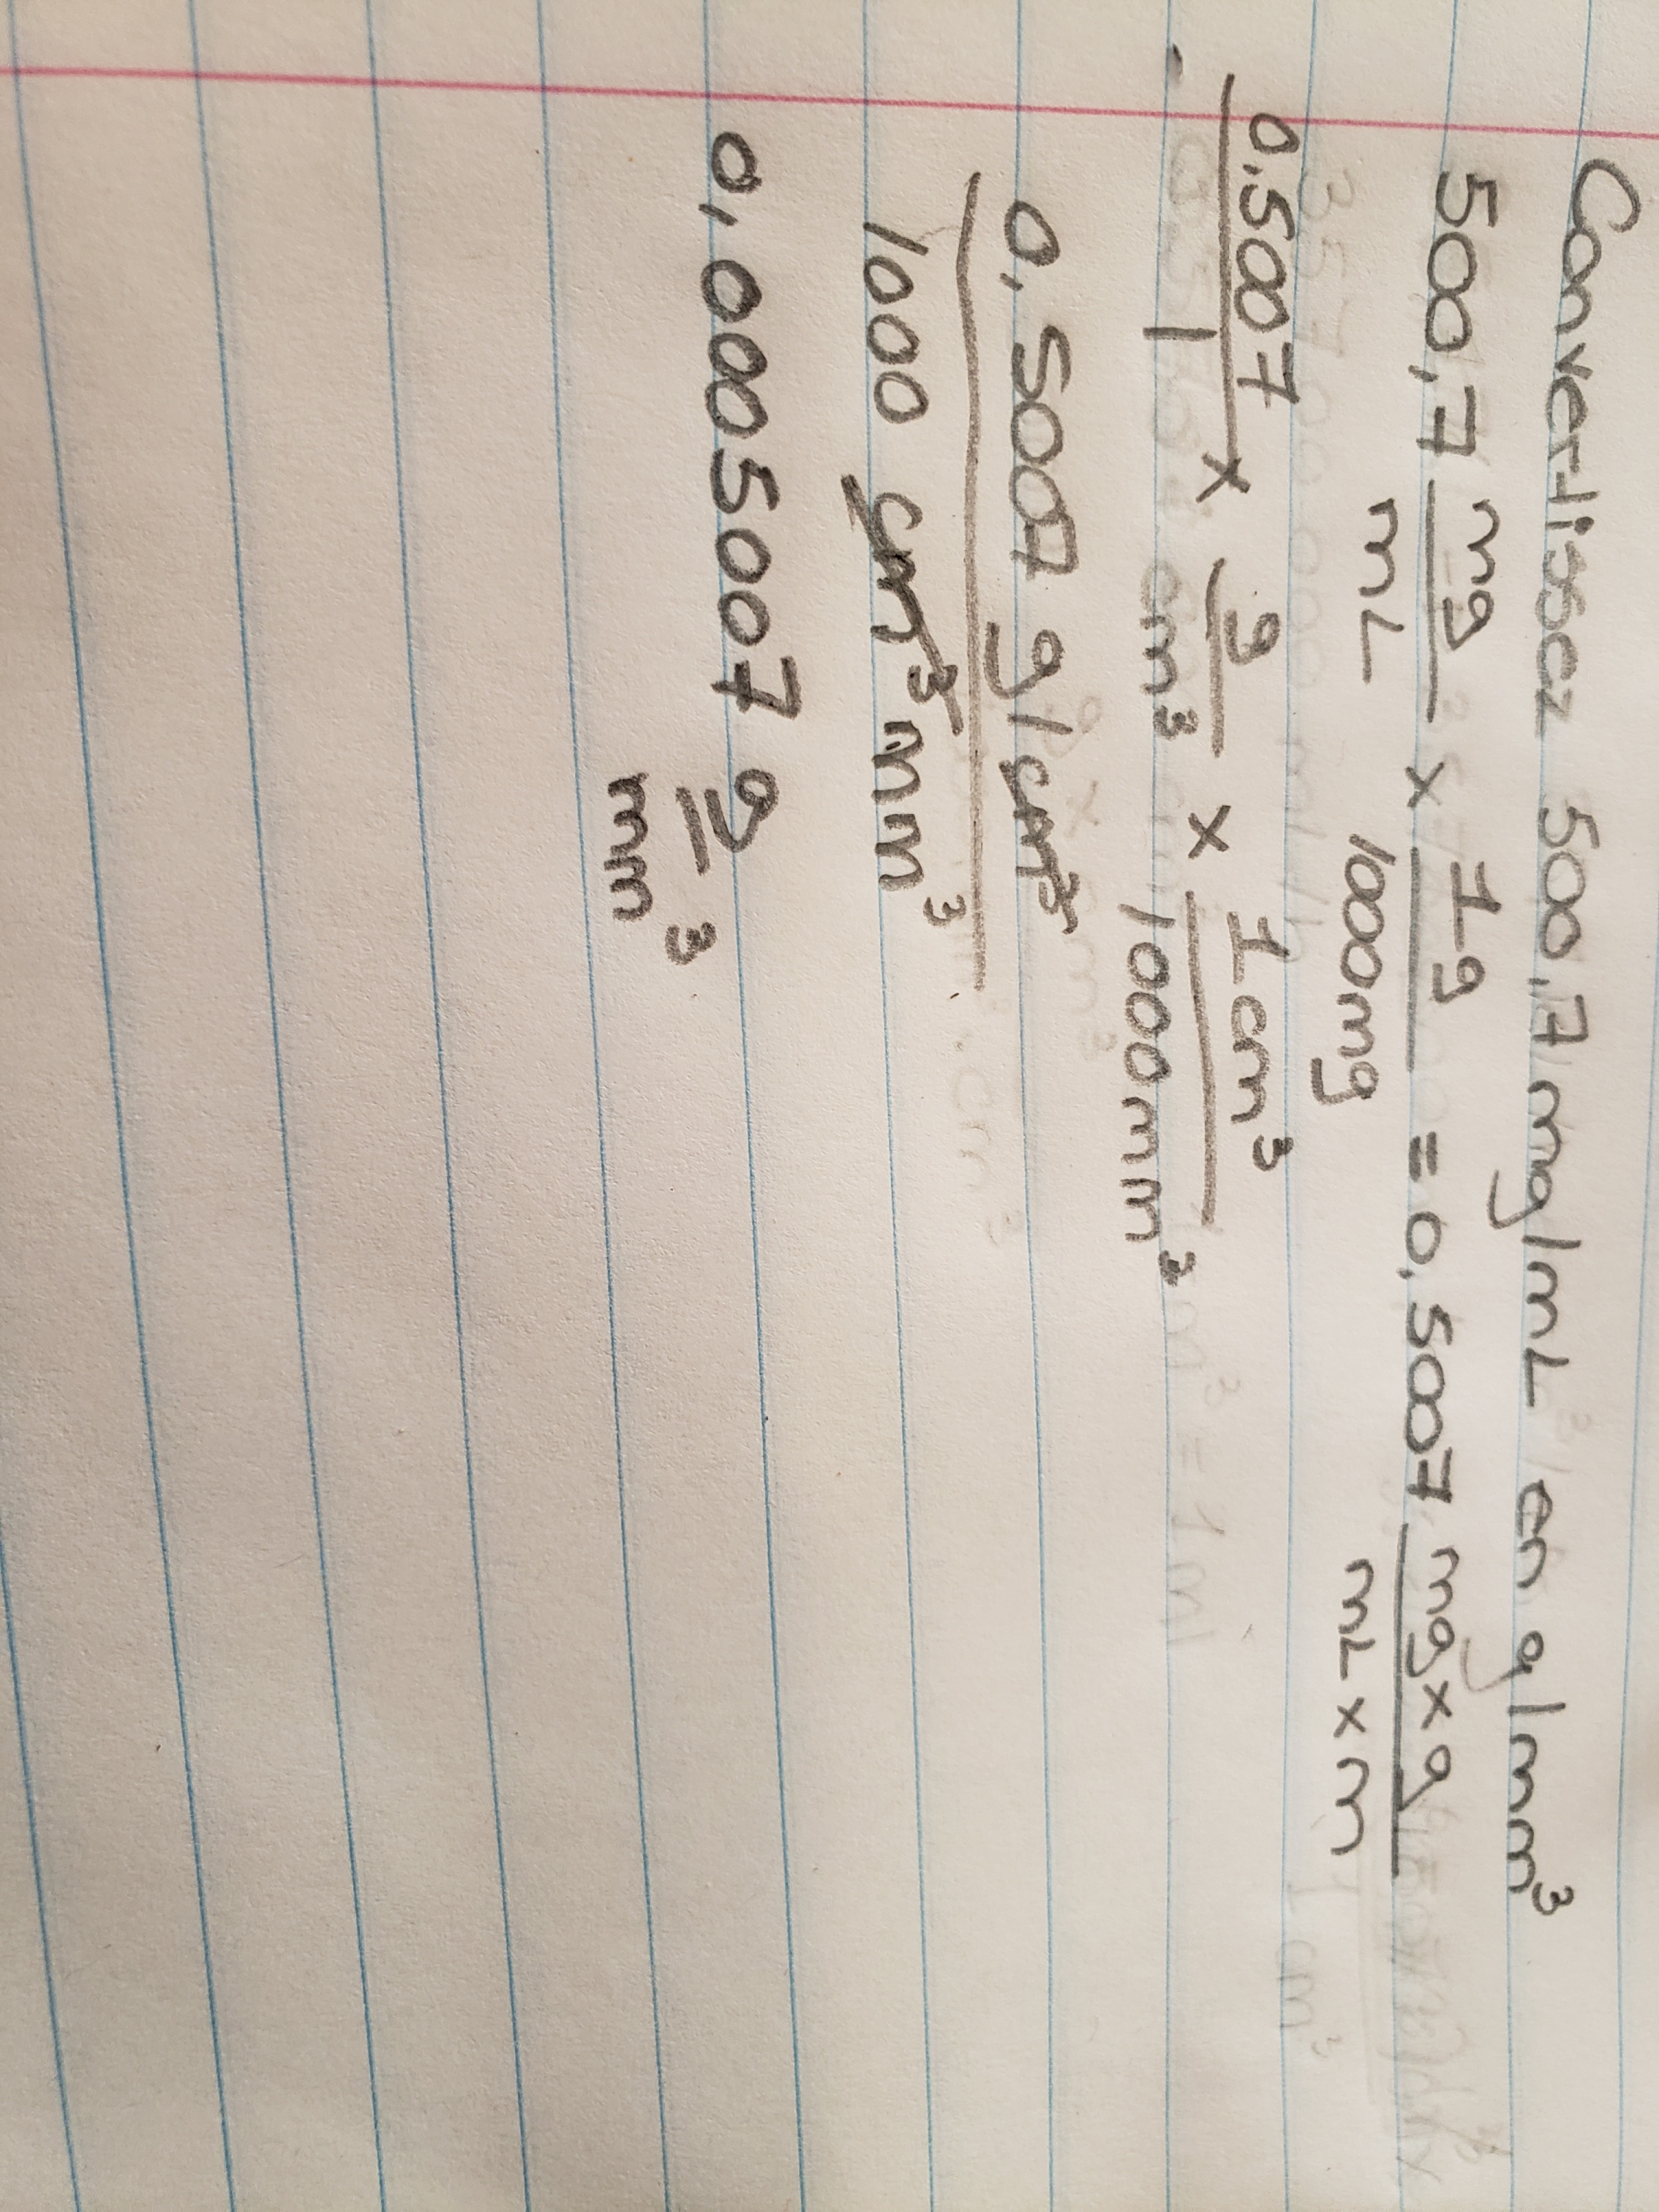 Convertissez 500,7 mg/mL en g/mm³
500,7 mg/mL × 1g/1000mg = 0,5007 mg×g/mL×m
0,5007/1 × g/cm³ × 1cm³/1000mm³
0,5007 g/cm³
1000 cm³ mm³
0,0005007 g/mm³